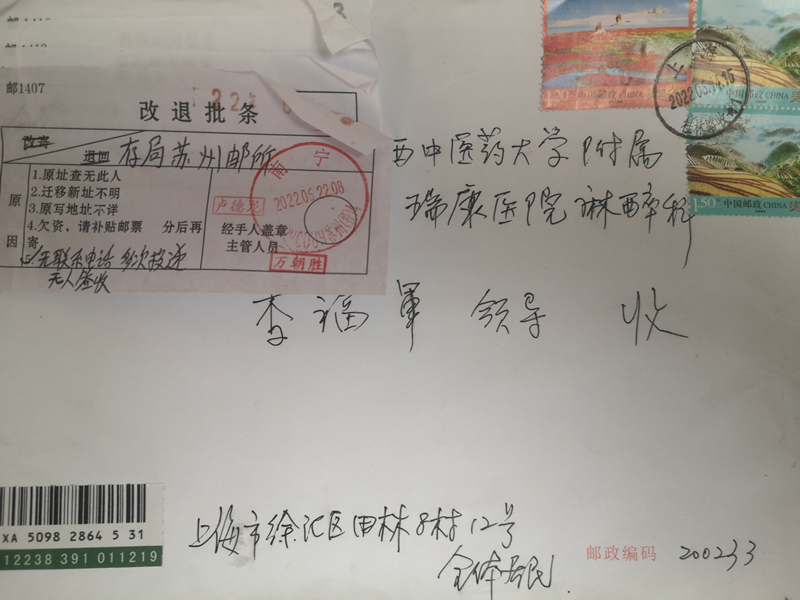 邮1407
改退批条
改寄
退回
存局苏州邮所
原因
1.原址查无此人
2.迁移新址不明
3.原写地址不详
4.欠资，请补贴邮票 分后再寄
5/无联系电话 多次投递
无人签收
经手人盖章
主管人员
卢德彪
万朝胜
南宁
2022.06.22.08
西中医药大学附属
瑞康医院麻醉科
李福军 领导 收
1.20
中国邮政 CHINA
上海
中国邮政 CHINA
1.50
中国邮政 CHINA
XA 5098 2864 5 31
12238 391 011219
上海市徐汇区田林8村12号
全体居民
邮政编码 200233